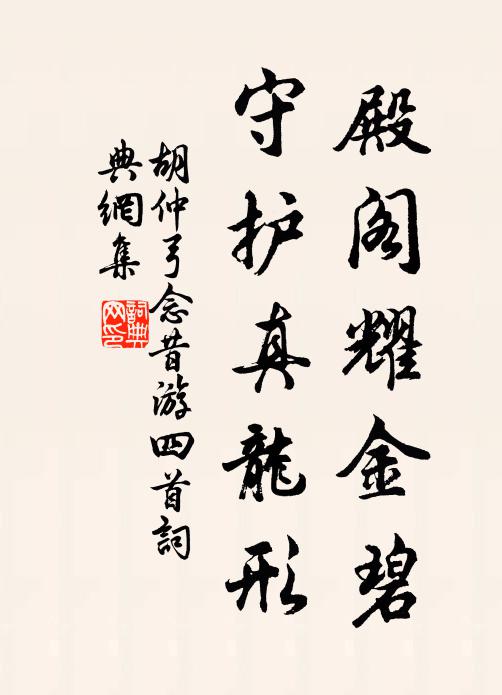 殿阁耀金碧
守护真龍形
胡仲弓念昔游四首詞
典網集
詞典
网印